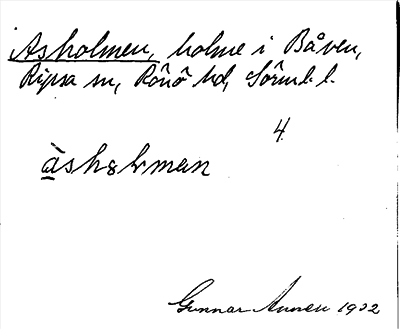 Asholmen, holme i Båven,
Ripsa sn, Rönö hd, Sörml. l.
4
àshɵlman
Gunnar Annell 1932